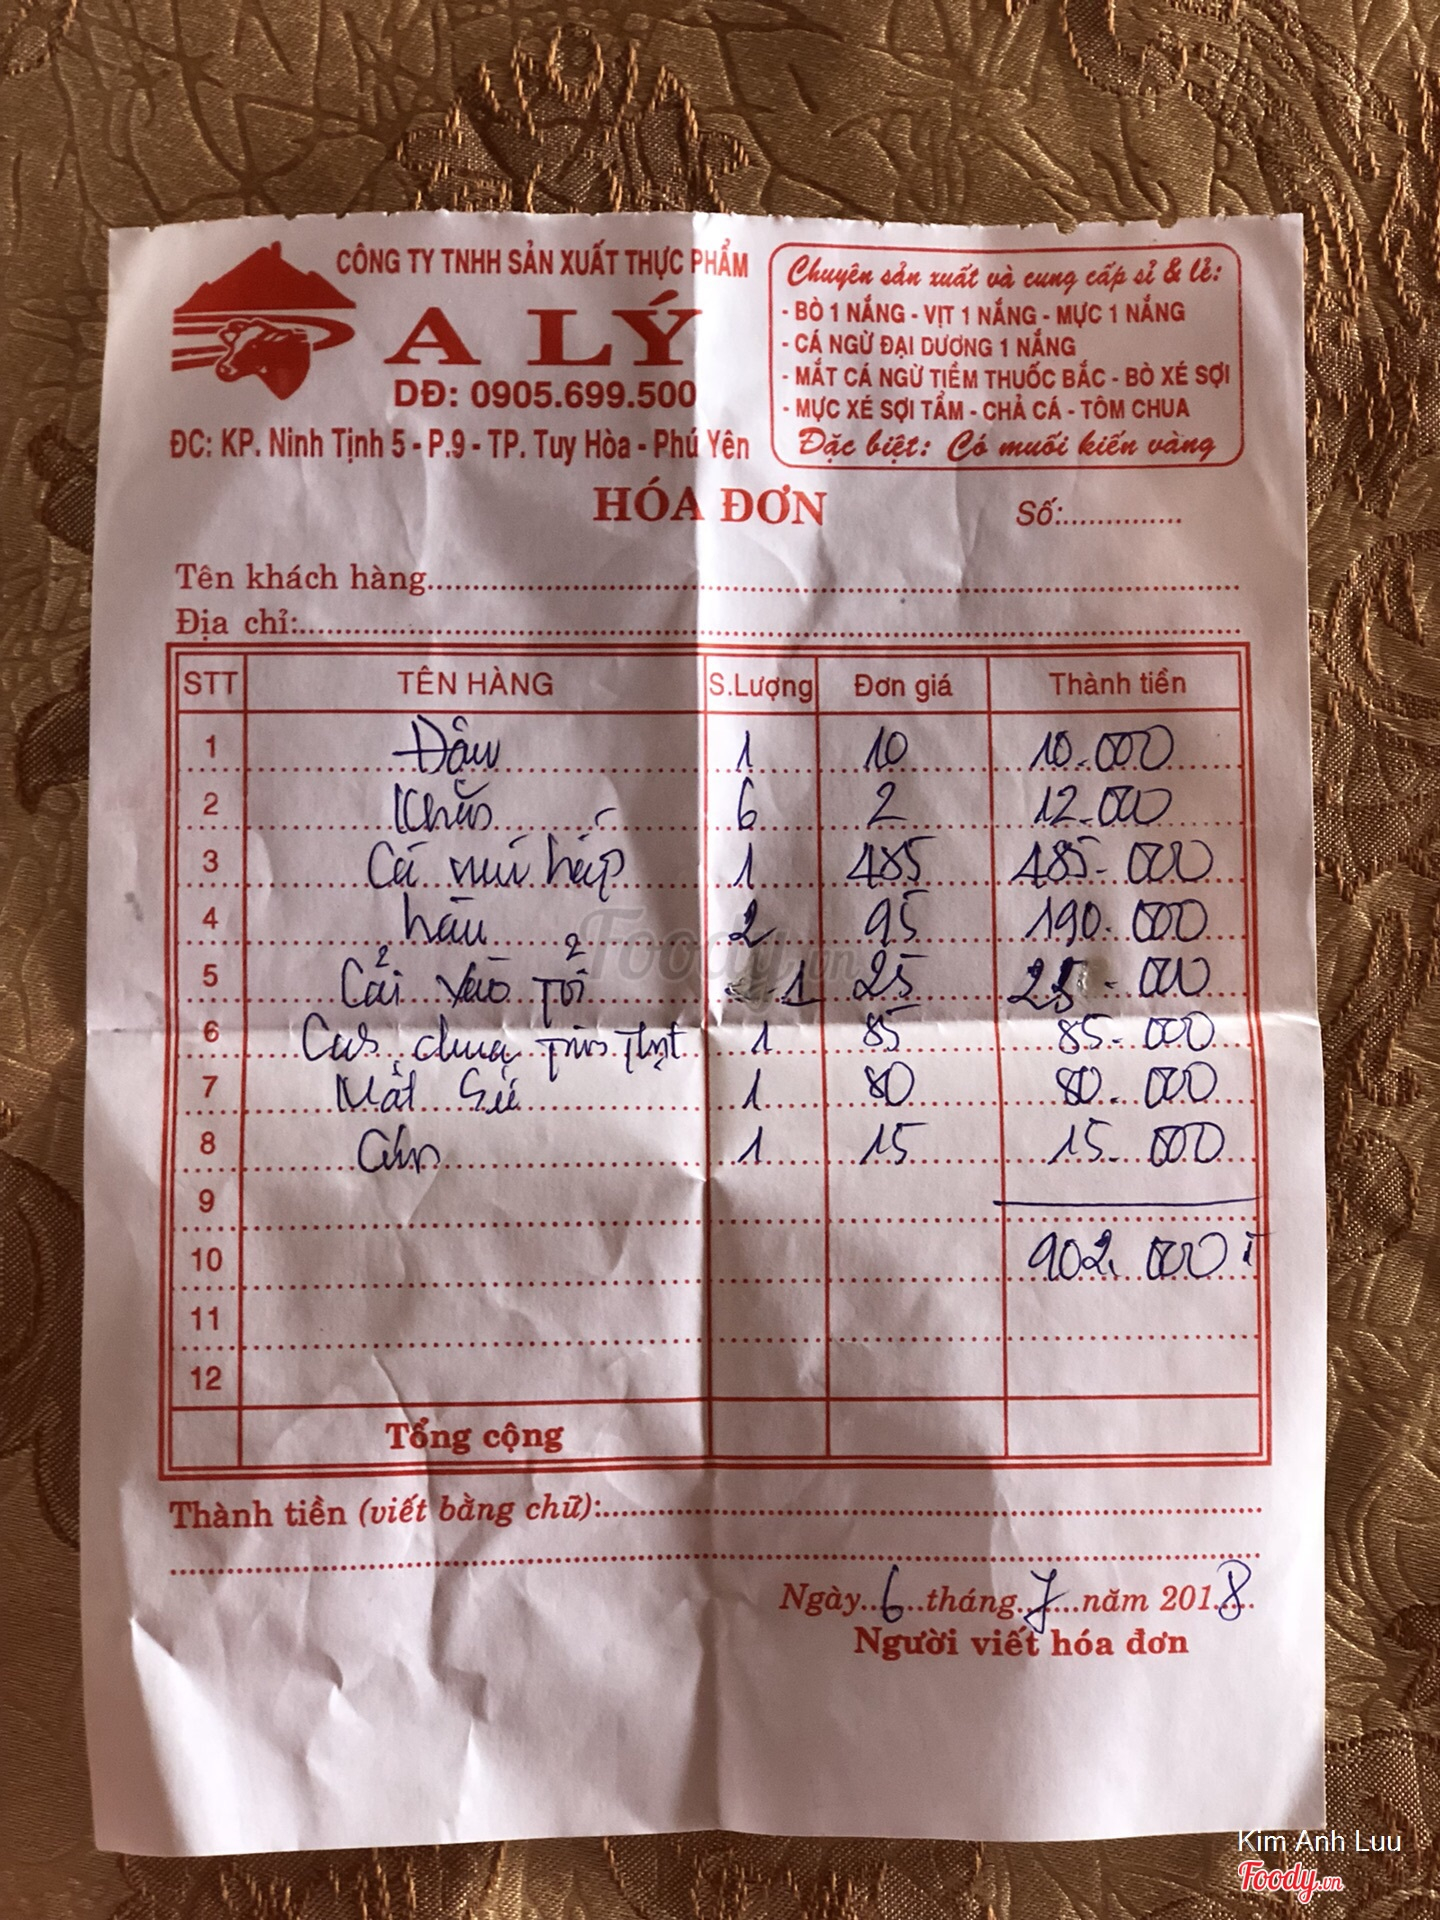 CÔNG TY TNHH SẢN XUẤT THỰC PHẨM
A LÝ
DĐ: 0905.699.500
ĐC: KP. Ninh Tịnh 5 - P.9 - TP. Tuy Hòa - Phú Yên
Chuyên sản xuất và cung cấp sỉ & lẻ:
- BÒ 1 NẮNG - VỊT 1 NẮNG - MỰC 1 NẮNG
- CÁ NGỪ ĐẠI DƯƠNG 1 NẮNG
- MẮT CÁ NGỪ TIỀM THUỐC BẮC - BÒ XÉ SỢI
- MỰC XÉ SỢI TẨM - CHẢ CÁ - TÔM CHUA
Đặc biệt: Có muối kiến vàng
HÓA ĐƠN
Số:...............
Tên khách hàng
Địa chỉ:
STT TÊN HÀNG S.Lượng Đơn giá Thành tiền
1 Đậu 1 10 10.000
2 Khăn 6 2 12.000
3 Cá mú hấp 1 485 485.000
4 hàu 2 95 190.000
5 Cải xào tỏi 1 25 25.000
6 chua 1 85 85.000
7 1 80 80.000
8 Cơm 1 15 15.000
9
10 902.000
11
12
Tổng cộng
Thành tiền (viết bằng chữ):
Ngày 6 tháng 7 năm 2018
Người viết hóa đơn
Foody.vn
Kim Anh Luu
Foody.vn